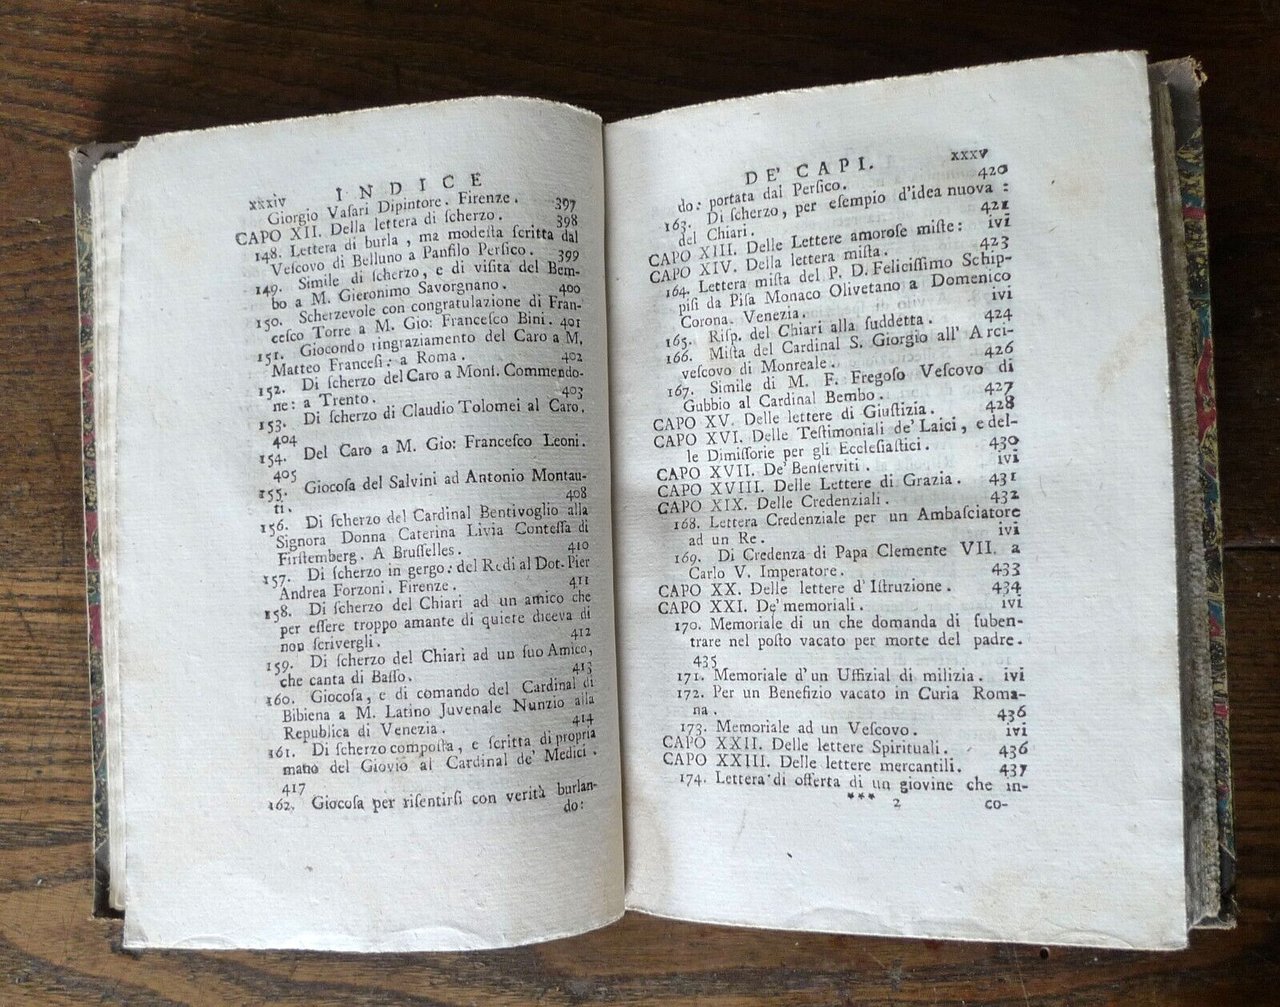 xxxiv INDICE
Giorgio Vasari Dipintore. Firenze. 397
CAPO XII. Della lettera di scherzo. 398
148. Lettera di burla, ma modesta scritta dal
Vescovo di Belluno a Panfilo Persico. 399
149. Simile di scherzo, e di visita del Bem-
bo a M. Gieronimo Savorgnano. 400
150. Scherzevole con congratulazione di Fran-
cesco Torre a M. Gio: Francesco Bini. 401
151. Giocondo ringraziamento del Caro a M.
Matteo Francesi: a Roma. 402
152. Di scherzo del Caro a Monſ. Commendo-
ne: a Trento. 403
153. Di scherzo di Claudio Tolomei al Caro.
404
154. Del Caro a M. Gio: Francesco Leoni.
405
155. Giocosa del Salvini ad Antonio Montau-
ti. 408
156. Di scherzo del Cardinal Bentivoglio alla
Signora Donna Caterina Livia Contessa di
Firstemberg. A Brusselles. 410
157. Di scherzo in gergo: del Redi al Dot. Pier
Andrea Forzoni. Firenze. 411
158. Di scherzo del Chiari ad un amico che
per essere troppo amante di quiete diceva di
non scrivergli. 412
159. Di scherzo del Chiari ad un suo Amico,
che canta di Basso. 413
160. Giocosa, e di comando del Cardinal di
Bibiena a M. Latino Juvenale Nunzio alla
Republica di Venezia. 414
161. Di scherzo composta, e scritta di propria
mano del Giovio al Cardinal de' Medici.
417
162. Giocosa per risentirsi con verità burlan-
do:
DE' CAPI. xxxv
do: portata dal Persico. 420
163. Di scherzo, per esempio d'idea nuova:
del Chiari. 421
CAPO XIII. Delle Lettere amorose miste: ivi
CAPO XIV. Della lettera mista. 423
164. Lettera mista del P. D. Felicissimo Schip-
pisi da Pisa Monaco Olivetano a Domenico
Corona. Venezia. ivi
165. Risp. del Chiari alla suddetta. 424
166. Mista del Cardinal S. Giorgio all' Arci-
vescovo di Monreale. 426
167. Simile di M. F. Fregoso Vescovo di
Gubbio al Cardinal Bembo. 427
CAPO XV. Delle lettere di Giustizia. 428
CAPO XVI. Delle Testimoniali de' Laici, e del-
le Dimissorie per gli Ecclesiastici. 430
CAPO XVII. De' Benserviti. ivi
CAPO XVIII. Delle Lettere di Grazia. 431
CAPO XIX. Delle Credenziali. 432
168. Lettera Credenziale per un Ambasciatore
ad un Re. ivi
169. Di Credenza di Papa Clemente VII. a
Carlo V. Imperatore. 433
CAPO XX. Delle lettere d'Istruzione. 434
CAPO XXI. De' memoriali. ivi
170. Memoriale di un che domanda di suben-
trare nel posto vacato per morte del padre.
435
171. Memoriale d'un Uffizial di milizia. ivi
172. Per un Benefizio vacato in Curia Roma-
na. 436
173. Memoriale ad un Vescovo. ivi
CAPO XXII. Delle lettere Spirituali. 436
CAPO XXIII. Delle lettere mercantili. 437
174. Lettera di offerta di un giovine che in-
*** 2 co-